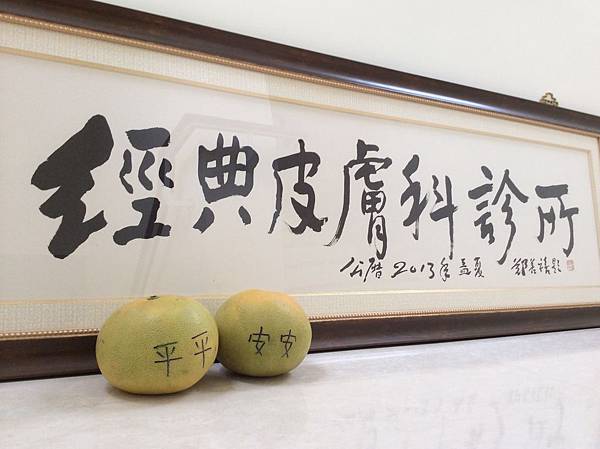 經典皮膚科診所
公曆 2013年 孟夏 鄭善禧題
平平 安安